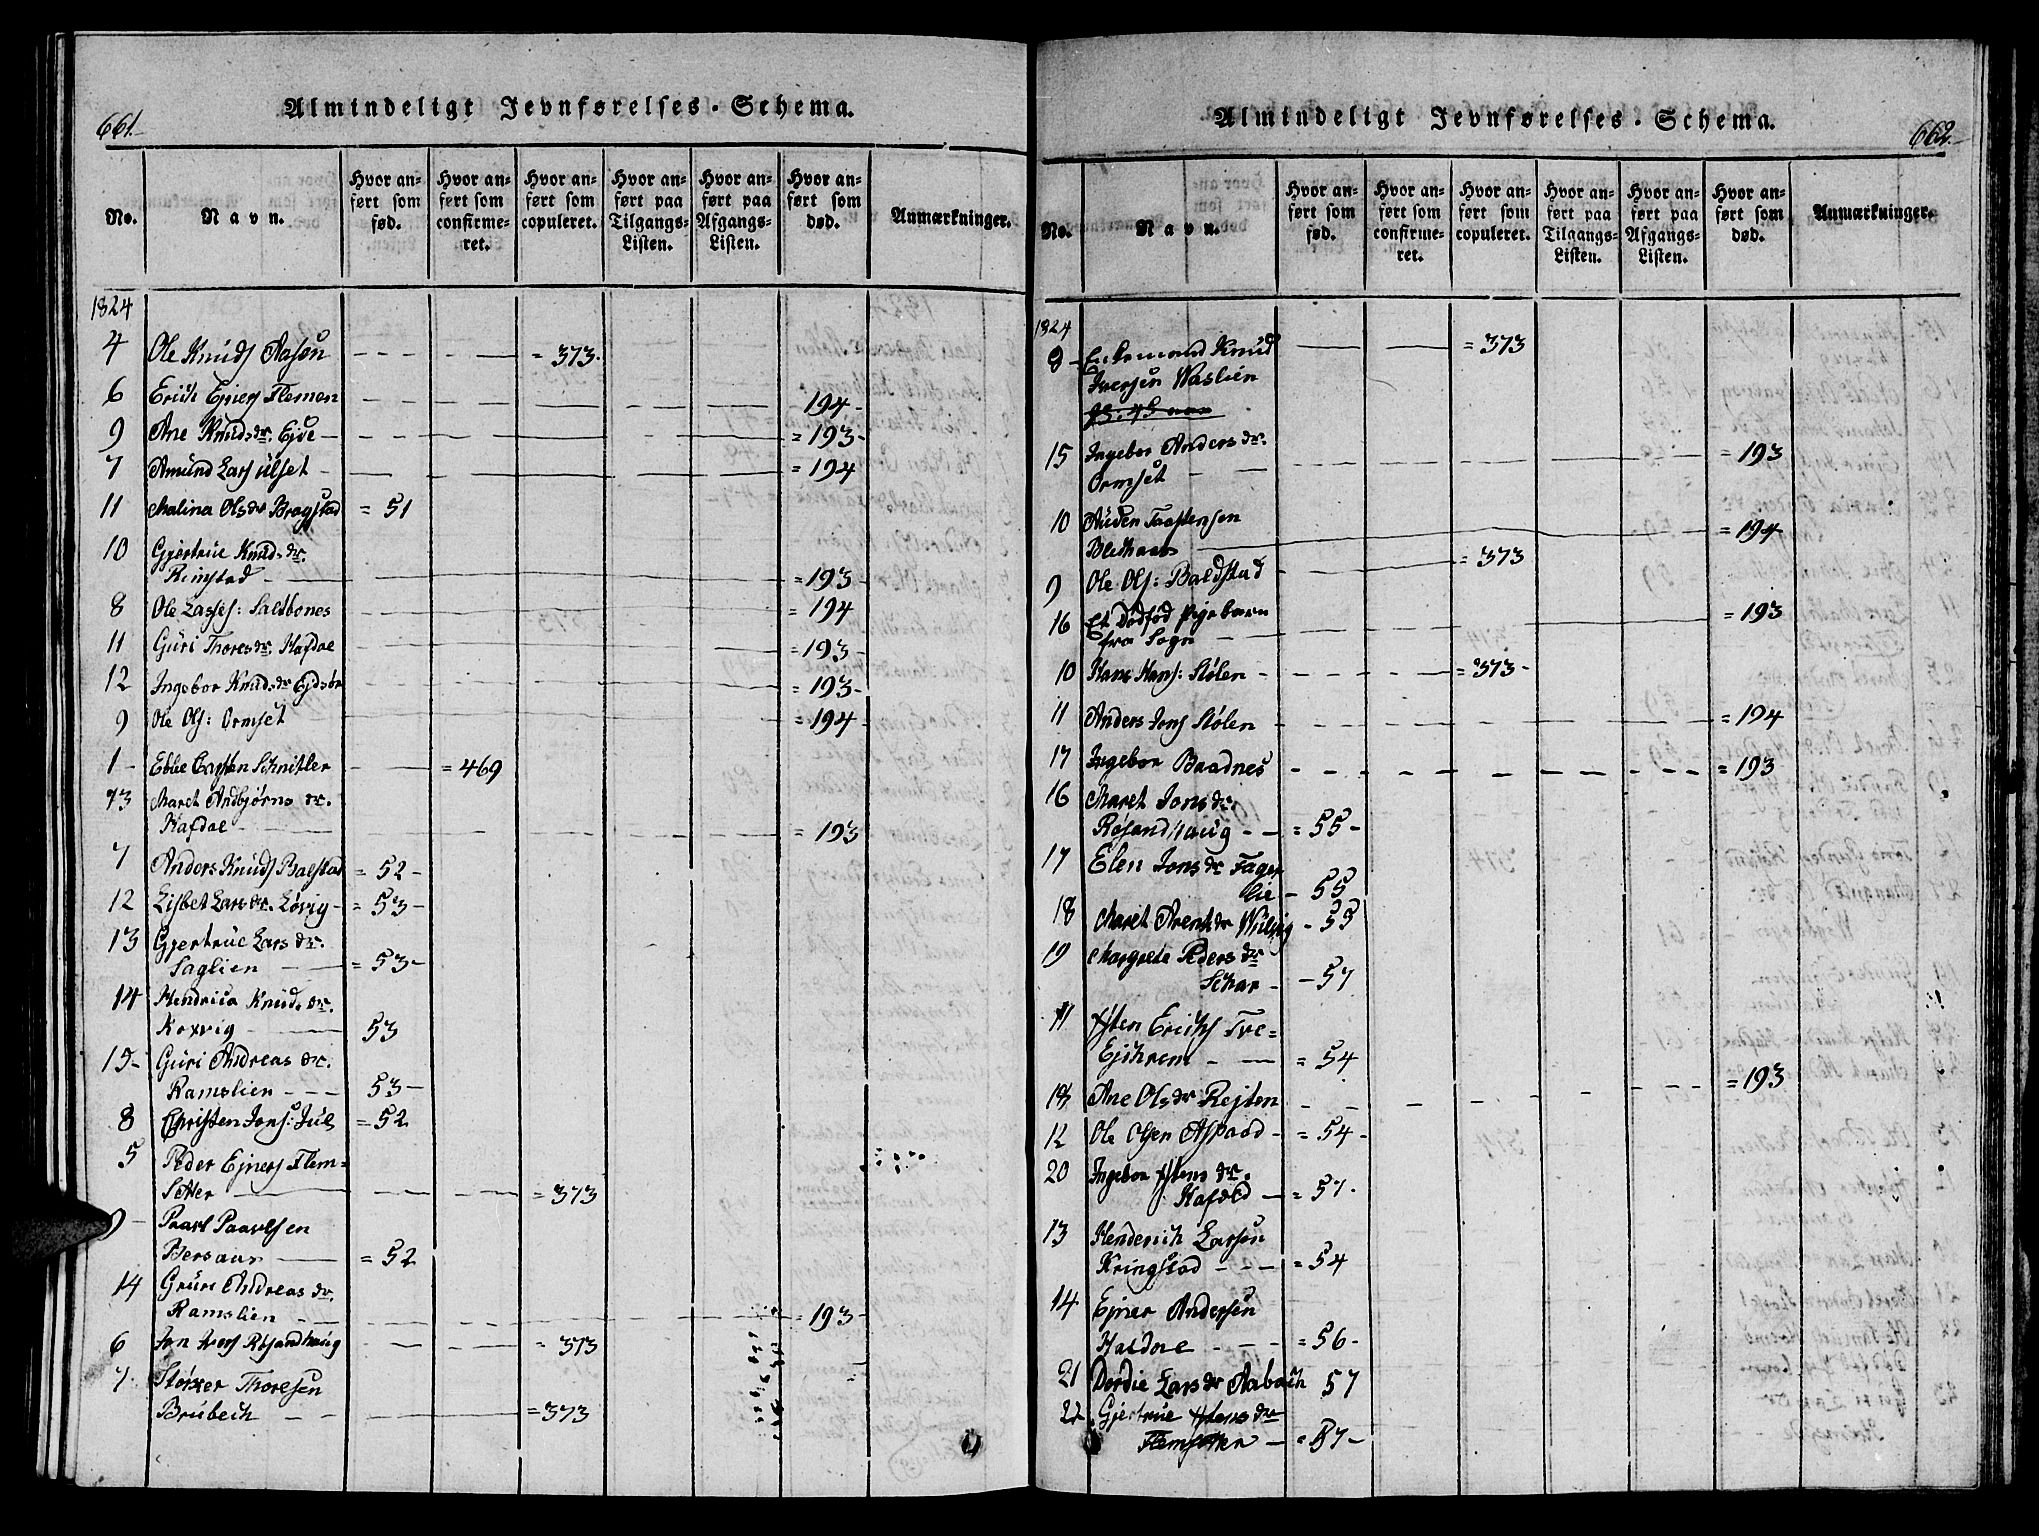 661.
Almindeligt Jevnførelses-Schema.
No.
Navn.
Hvor anført som fød.
Hvor anført som confirmeret.
Hvor anført som copuleret.
Hvor anført paa Tilgangs-Listen.
Hvor anført paa Afgangs-Listen.
Hvor anført som død.
Anmærkninger.
1824
4 Ole Knuds Aasen - - - = 373.
6 Erich Ejners Flemen - - - 194 -
9 Ane Knudsdr. Ejde - - - = 193 -
7 Amund Lars Ulset - - - = 194
11 Malina Olsdr Bragstad = 51
10 Gjertrue Knudsdr.
Rimstad - - - = 193 -
8 Ole Lasses: Saltbones - - - = 194
11 Guri Thoresdr. Hafdal - - - = 193 -
12 Ingebor Knudsdr Ejdsør - - - = 193 -
9 Ole Ols: Ormset - - - = 194 -
1 - Ebbe Carsten Schnitler - - = 469
13 Maret Andbjørns dr.
Hafdal - - - = 193
7 Anders Knuds Balstad = 52 -
12 Lisbet Larsdr. Løvig - = 53 -
13 Gjertrue Larsdr.
Saglien - - = 53 -
14 Hendrica Knudsdr.
Koxvig - - 53
15 - Guri Andreas dr.
Ramslien - - - 53 -
8 Christen Jons: Juul = 52
5 Peder Ejners Flem=
Setter - - - = 373
9 - Paavl Paavlsen
Bersaas - - = 52
14 Gruri Andreas dr.
Ramslien - - - = 193 -
6 Jon Ivers Røsandhaug - - - = 373
7. Størker Thoresen
Brubech - - - = 373
662.
Almindeligt Jevnførelses-Schema.
No.
Navn.
Hvor anført som fød.
Hvor anført som confirmeret.
Hvor anført som copuleret.
Hvor anført paa Tilgangs-Listen.
Hvor anført paa Afgangs-Listen.
Hvor anført som død.
Anmærkninger.
1824
8 - Enkemand Knud - - = 373
Iversen Waslien
15 Ingebor Andersdr.
Ormset - - - = 193
10 Auden Taastensen
- - - = 194
9 Ole Ols: Baldstad - - - = 373
16 Et Dødfød Pigebarn
fra Sogn - - - = 193
10 Hans Hans: Stølen - - - = 373 -
11 Anders Jons Stølen - - - = 194
17 Ingebor Baadnes - - - = 193
16 Maret Jonsdr.
Røsandhaug - - = 55 -
17 Elen Jonsdr Fager
lie - 55
18 Maret Arentsdr Wulvig - 55
19 Margrete Pedersdr
Schar - - 57
11 Østen Erichs Tve=
Ejchrem - - = 54
18 Ane Olsdr Rejten - - - = 193
12 Ole Olsen Aspaas - = 54 -
20 Ingebor Østensdr.
Hafdal - = 57 -
13 Henderich Larsen
Kringstad - - - = 54
14 Ejner Andersen
Haldoe - - - = 56 -
21 Dordie Larsdr Aabach 57
22 Gjertrue Østensdr
Flemsetter - = 57 -